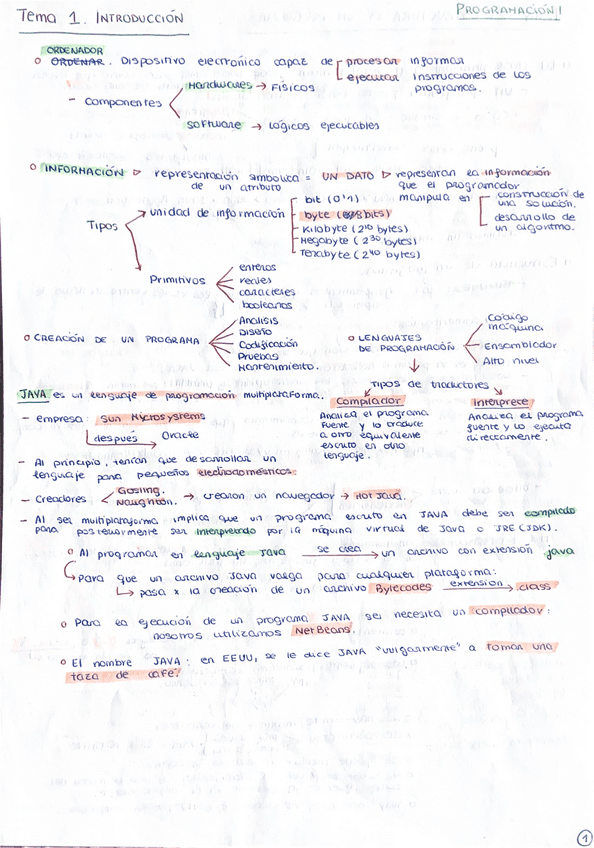 Tema 1. INTRODUCCIÓN
PROGRAMACIÓN I
ORDENADOR
ORDENAR. Dispositivo electrónico capaz de procesar información
ejecutar instrucciones de los programas.
- Componentes
Hardwares → Físicos
software → lógicos ejecutables
INFORMACIÓN ▷ representación simbólica = UN DATO ▷ representan la información
de un atributo
que el programador
manipula en
construcción de
una solución.
desarrollo de
un algoritmo.
Tipos
unidad de información
bit (0'1)
byte (8bits)
Kilobyte (2¹⁰ bytes)
Megabyte (2³⁰ bytes)
Terabyte (2⁴⁰ bytes)
Primitivos
enteros
reales
caracteres
booleanos
CREACIÓN DE UN PROGRAMA
Análisis
Diseño
Codificación
Pruebas
Mantenimiento.
LENGUAJES
DE PROGRAMACIÓN
Código
máquina
Ensamblador
Alto nivel
Tipos de traductores
Compilador
Analiza el programa
fuente y lo traduce
a otro equivalente
escrito en otro
lenguaje.
Interprete
Analiza el programa
fuente y lo ejecuta
directamente.
JAVA es un lenguaje de programación multiplataforma.
- empresa: Sun Microsystems
después → Oracle
- Al principio, tenían que desarrollar un
lenguaje para pequeños electrodomésticos.
- Creadores
Gosling.
Naughton.
→ crearon un navegador → Hot Java.
- Al ser multiplataforma implica que un programa escrito en JAVA debe ser compilado
para posteriormente ser interpretado por la máquina virtual de Java o JRE (JDK).
Al programar en lenguaje Java se crea → un archivo con extensión java
Para que un archivo JAVA valga para cualquier plataforma:
pasa x la creación de un archivo Bytecodes extensión → class
Para la ejecución de un programa JAVA se necesita un compilador:
nosotros utilizamos NetBeans.
El nombre JAVA: en EEUU, se le dice JAVA "vulgarmente" a tomar una
taza de café.
1